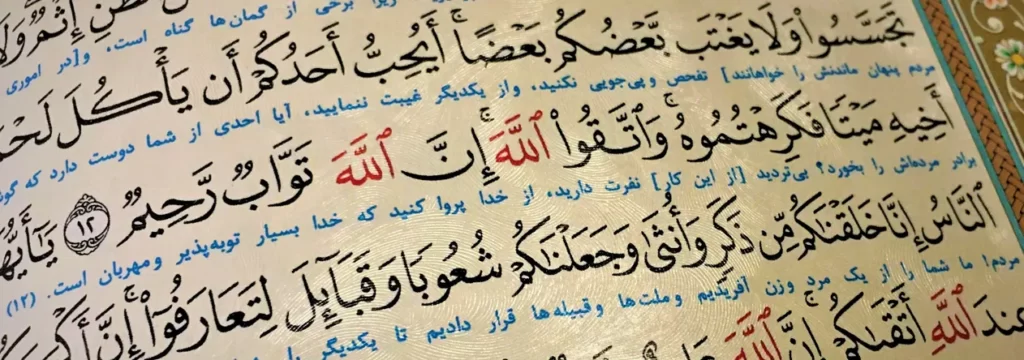 ظَنِّ إِثْمٌ وَلَا
برخی از گمان‌ها گناه است، و[در اموری
تَجَسَّسُوا۟ وَلَا يَغْتَب بَّعْضُكُم بَعْضًا ۚ أَيُحِبُّ أَحَدُكُمْ أَن يَأْكُلَ لَحْمَ
مردم پنهان ماندنش را خواهانند] تفحص و پی‌جویی نکنید، و از یکدیگر غیبت ننمایید، آیا احدی از شما دوست دارد که گوشت
أَخِيهِ مَيْتًا فَكَرِهْتُمُوهُ ۚ وَٱتَّقُوا۟ ٱللَّهَ ۚ إِنَّ ٱللَّهَ تَوَّابٌ رَّحِيمٌ ۝١٢ يَـٰٓأَيُّهَا
برادر مرده‌اش را بخورد؟ بی‌تردید [از این کار] نفرت دارید، از خدا پروا کنید که خدا بسیار توبه‌پذیر و مهربان است. (۱۲)
ٱلنَّاسُ إِنَّا خَلَقْنَـٰكُم مِّن ذَكَرٍ وَأُنثَىٰ وَجَعَلْنَـٰكُمْ شُعُوبًا وَقَبَآئِلَ لِتَعَارَفُوٓا۟ ۚ إِنَّ
مردم! ما شما را از یک مرد وزن آفریدیم و ملت‌ها و قبیله‌ها قرار دادیم تا یکدیگر را
عِندَ ٱللَّهِ أَتْقَىٰكُمْ ۚ إِنَّ ٱللَّهَ